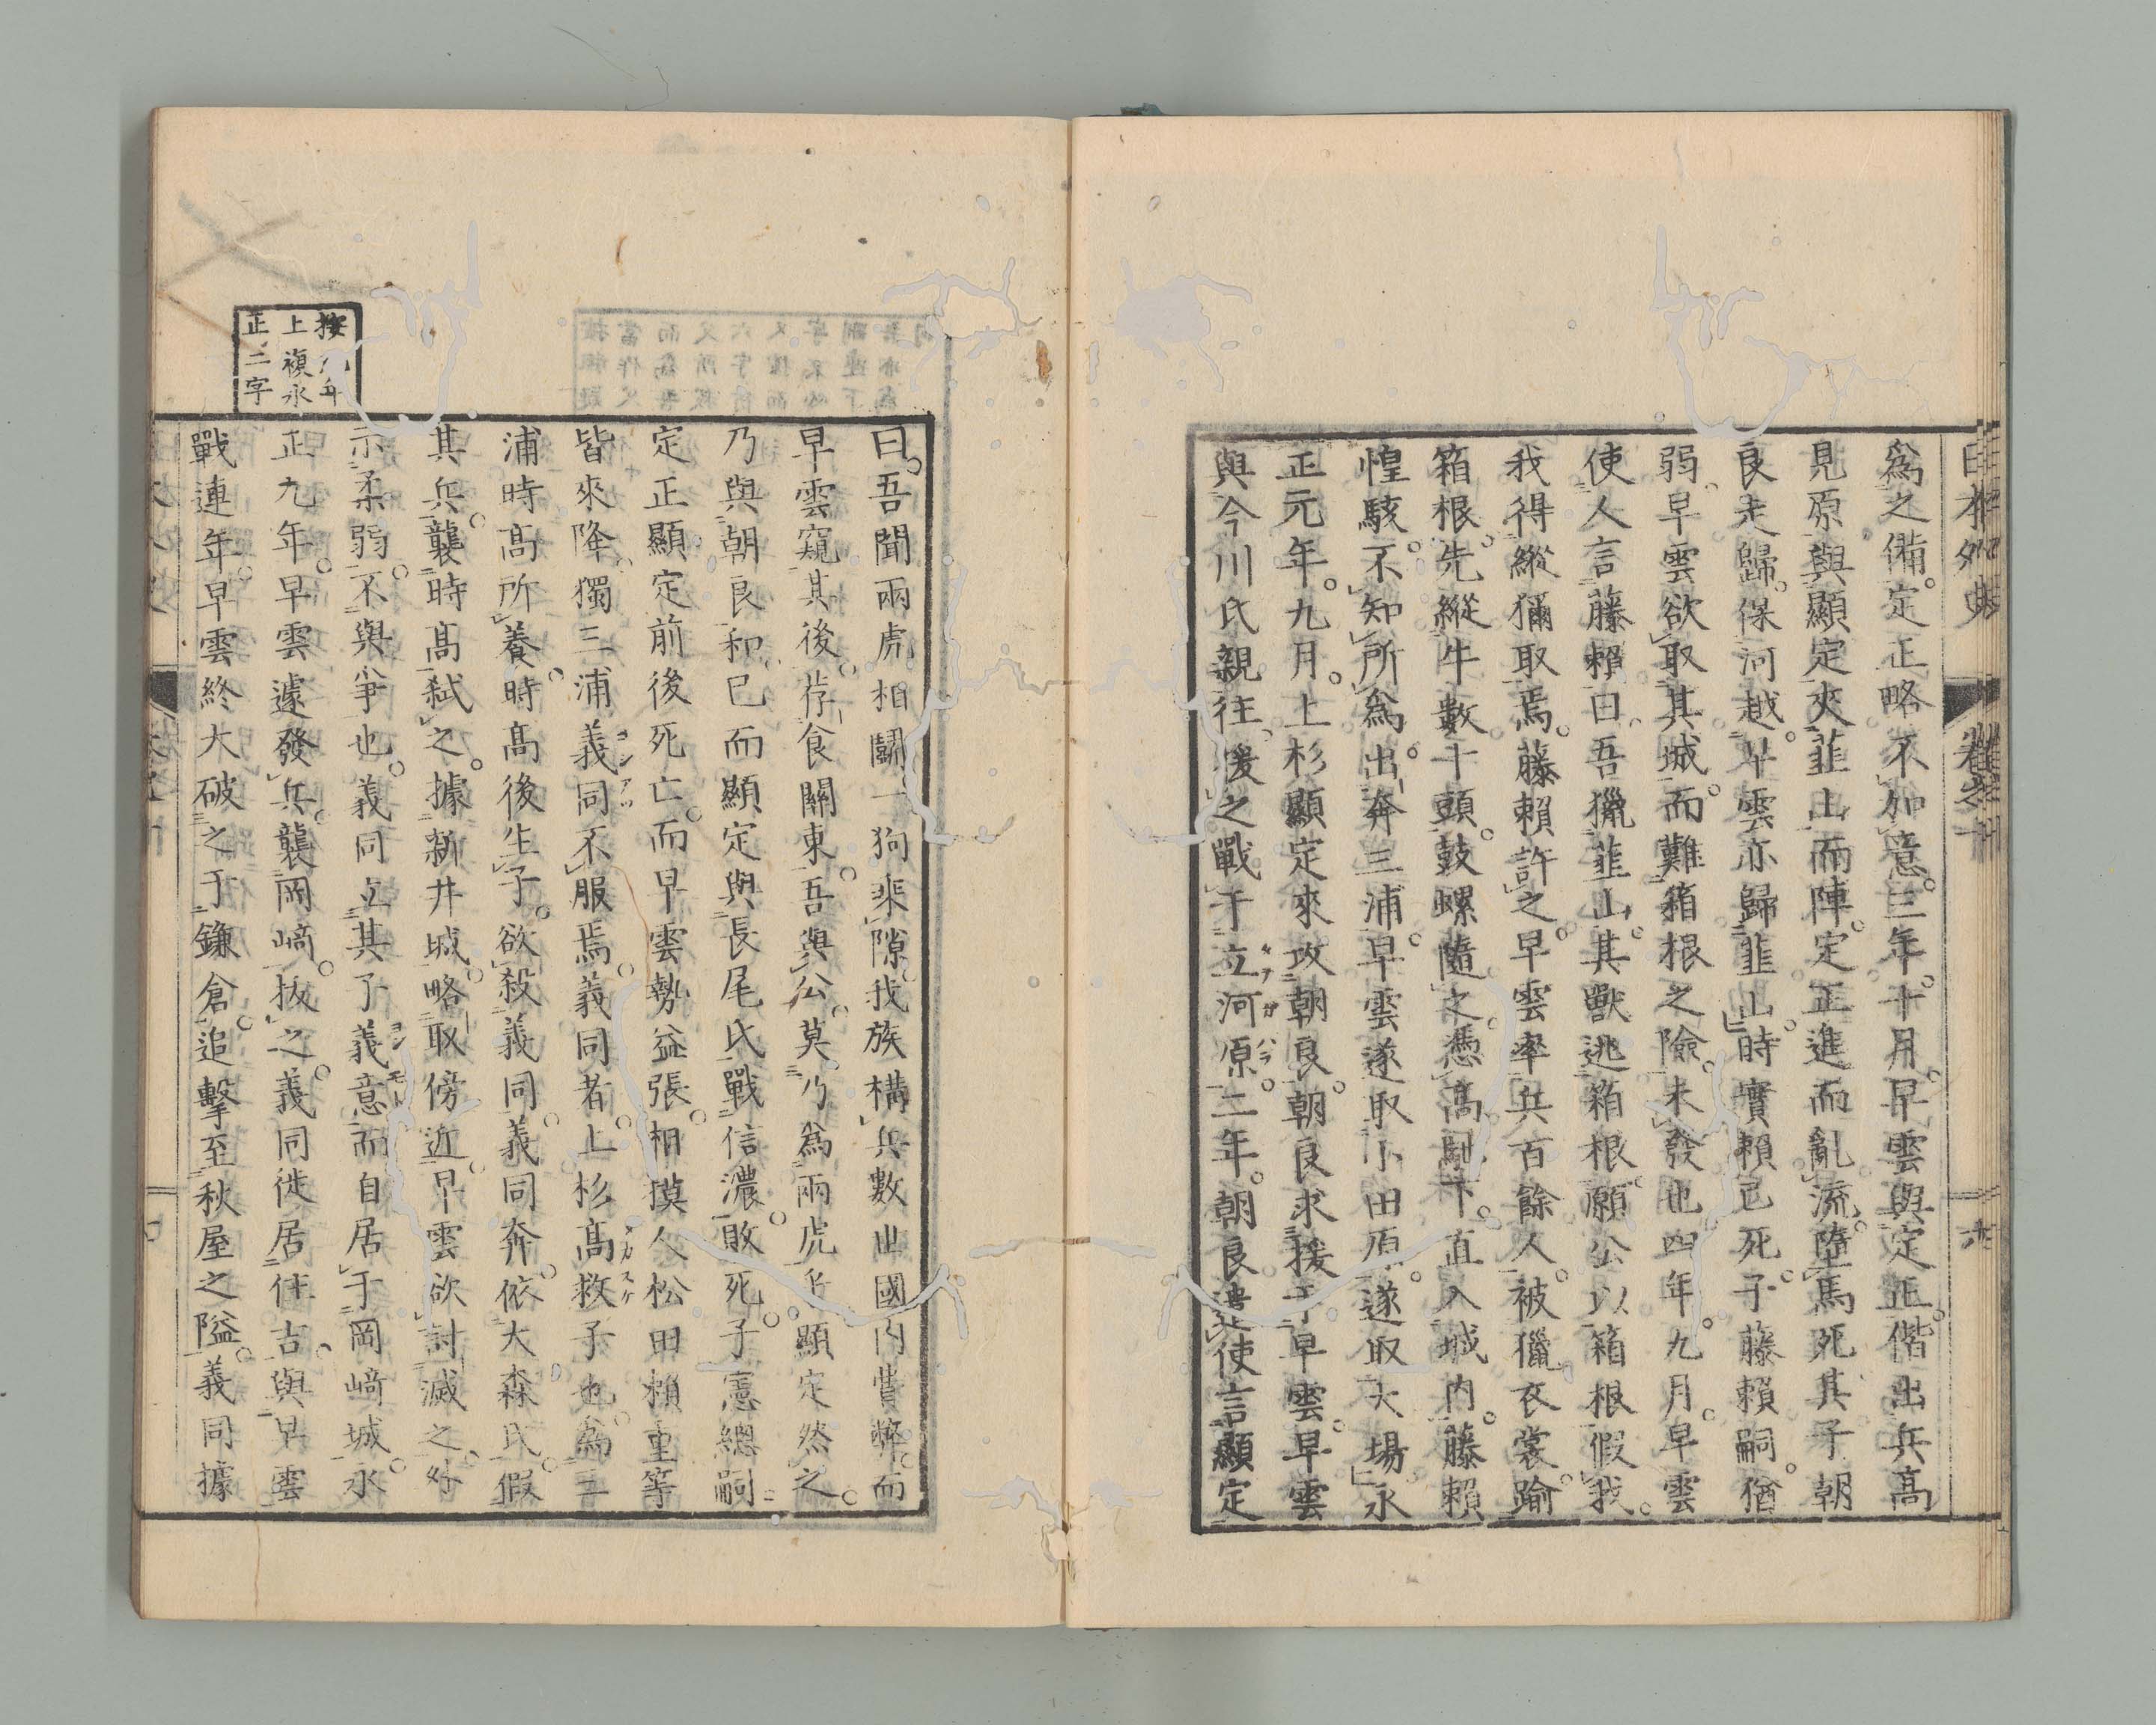 日本外史
爲之備。定正略不加意。三年。十月。早雲與定正。偕出兵高
見原。與顯定夾韮山而陣。定正進而亂流。墮馬死。其子朝
良走歸。保河越。早雲亦歸韮山。時實賴已死。子藤賴嗣。猶
弱。早雲欲取其城。而難箱根之險。未發也。四年。九月。早雲
使人言藤賴曰。吾獵韮山。其獸逃箱根。願公以箱根假我。
我得縱獵取焉。藤賴許之。早雲率兵百餘人。被獵衣裳。踰
箱根。先縱牛數十頭。鼓螺隨之。憑高馳下。直入城内。藤賴
惶駭。不知所爲。出奔三浦。早雲遂取小田原。遂取大場。永
正元年。九月。上杉顯定來攻朝良。朝良求援于早雲。早雲
與今川氏親往援之。戰于立河原。二年。朝良遣使言顯定
曰。吾聞兩虎相鬪。一狗乘隙。我族構兵數世。國内費弊。而
早雲窺其後。荐食關東。吾與公。莫乃爲兩虎乎。顯定然之。
乃與朝良和。已而顯定與長尾氏戰信濃。敗死。子憲總嗣。
定正顯定前後死亡。而早雲勢益張。相摸人松田賴重等
皆來降。獨三浦義同不服焉。義同者。上杉高救子也。爲三
浦時高所養。時高後生子。欲殺義同。義同奔依大森氏。假
其兵。襲時高弑之。據新井城。略取傍近。早雲欲討滅之。外
示柔弱。不與爭也。義同立其子義意。而自居于岡﨑城。永
正九年。早雲遽發兵。襲岡﨑。拔之。義同徙居住吉。與早雲
戰連年。早雲終大破之于鎌倉。追擊至秋屋之隘。義同據
上複永
正二字